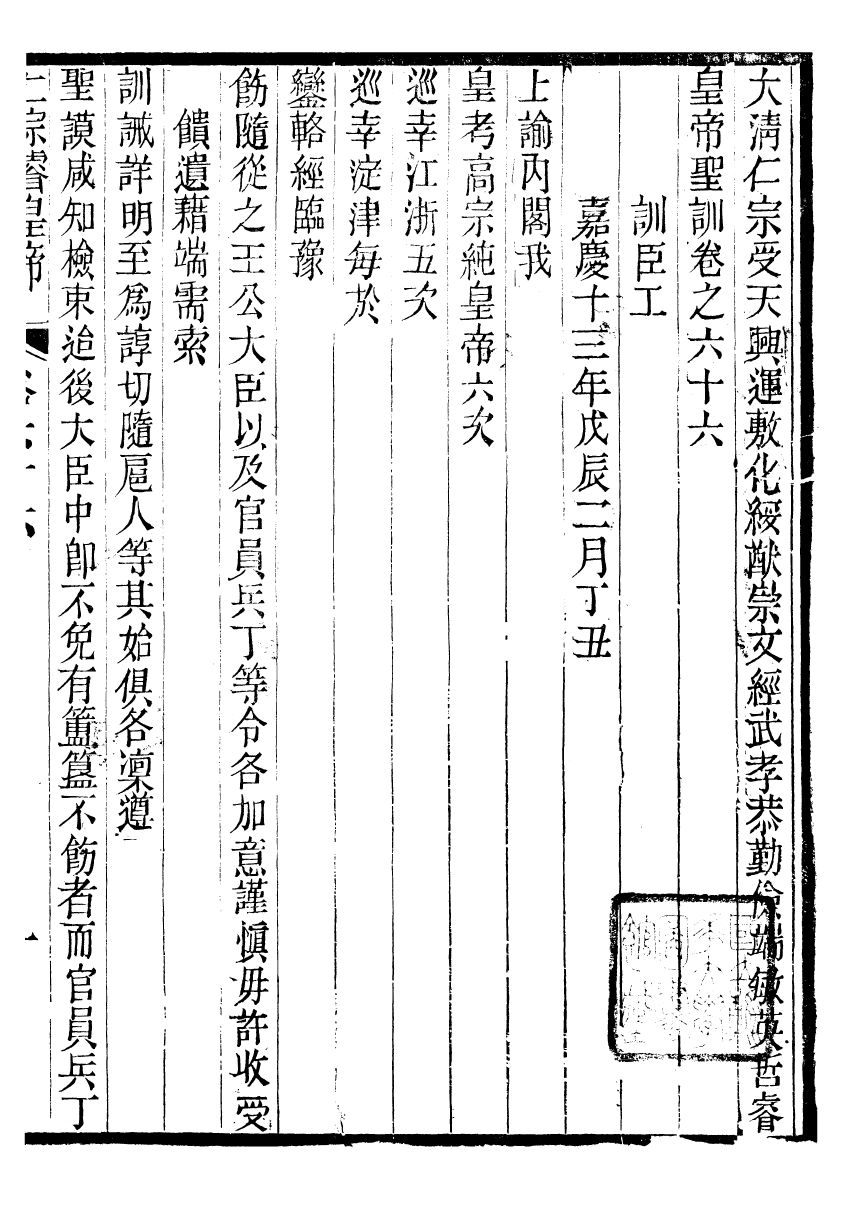 大清仁宗受天興運敷化綏猷崇文經武孝恭勤儉端敏英哲睿
皇帝聖訓卷之六十六
訓臣工
嘉慶十三年戊辰二月丁丑
上諭內閣我
皇考高宗純皇帝六次
巡幸江浙五次
巡幸淀津每於
鑾輅經臨豫
飭隨從之王公大臣以及官員兵丁等令各加意謹愼毋許收受
饋遺藉端需索
訓誡詳明至爲諄切隨扈人等其始俱各凜遵
聖謨咸知檢束迨後大臣中卽不免有簠簋不飭者而官員兵丁
仁宗睿皇帝
卷六十六